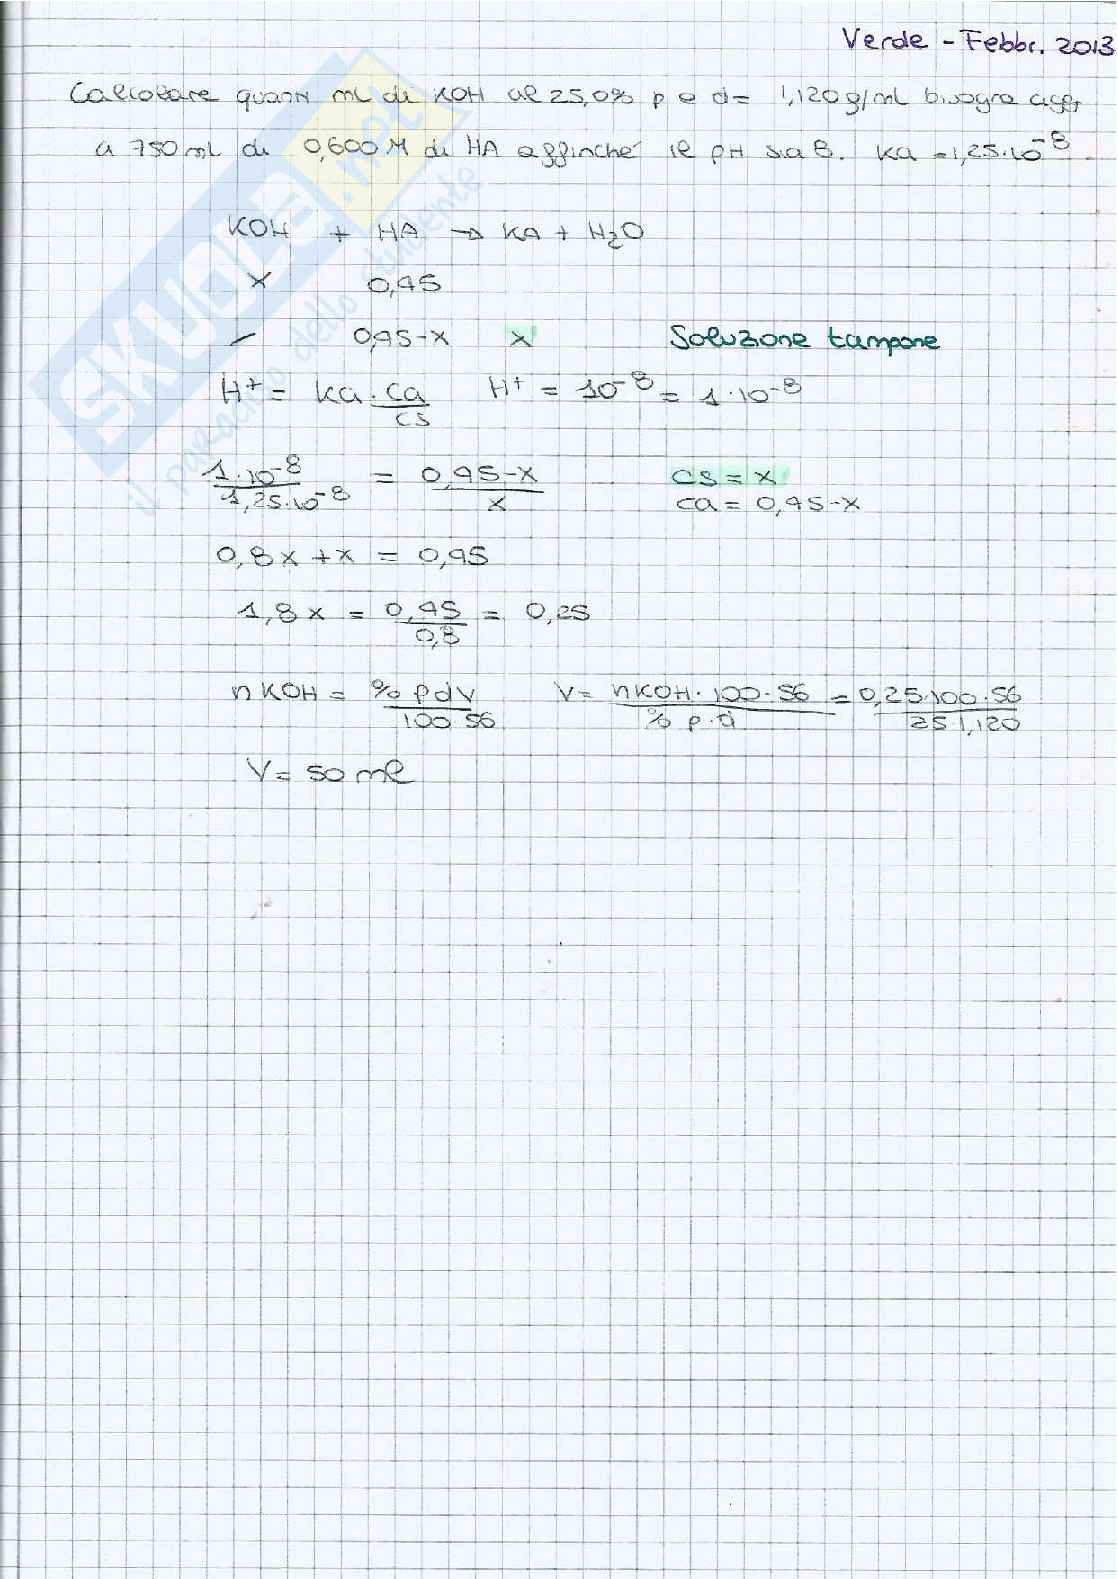 Verde - Febbr. 2013
Calcolare quanti ml di KOH al 25,0% p e d= 1,120 g/ml bisogna agg
a 750 ml di 0,600 M di HA affinché il pH sia 8. Ka = 1,25·10⁻⁸
KOH + HA → KA + H₂O
x 0,45
– 0,45-x x Soluzione tampone
H⁺ = Ka · Ca/Cs H⁺ = 10⁻⁸ = 1·10⁻⁸
1·10⁻⁸/1,25·10⁻⁸ = 0,45-x/x Cs = x
Ca = 0,45-x
0,8x + x = 0,45
1,8x = 0,45/0,8 = 0,25
n KOH = % p d V/100 56 V = nKOH·100·56/% p·d = 0,25·100·56/25 1,120
V = 50 ml
SKUOLA.net
il paradiso dello studente